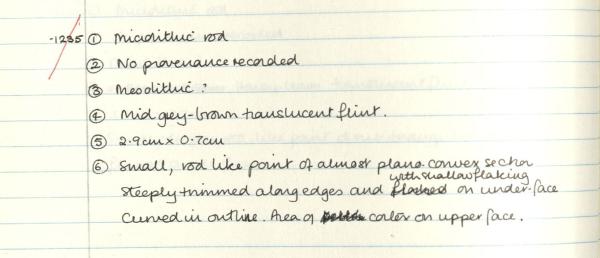 -1235 ① Microlithic rod
② No provenance recorded
③ Mesolithic ?
④ Mid grey-brown translucent flint.
⑤ 2.9cm x 0.7cm
⑥ Small, rod like point of almost plano-convex section
with shallow flaking
steeply trimmed along edges and on under-face
Curved in outline. Area of cortex on upper face.